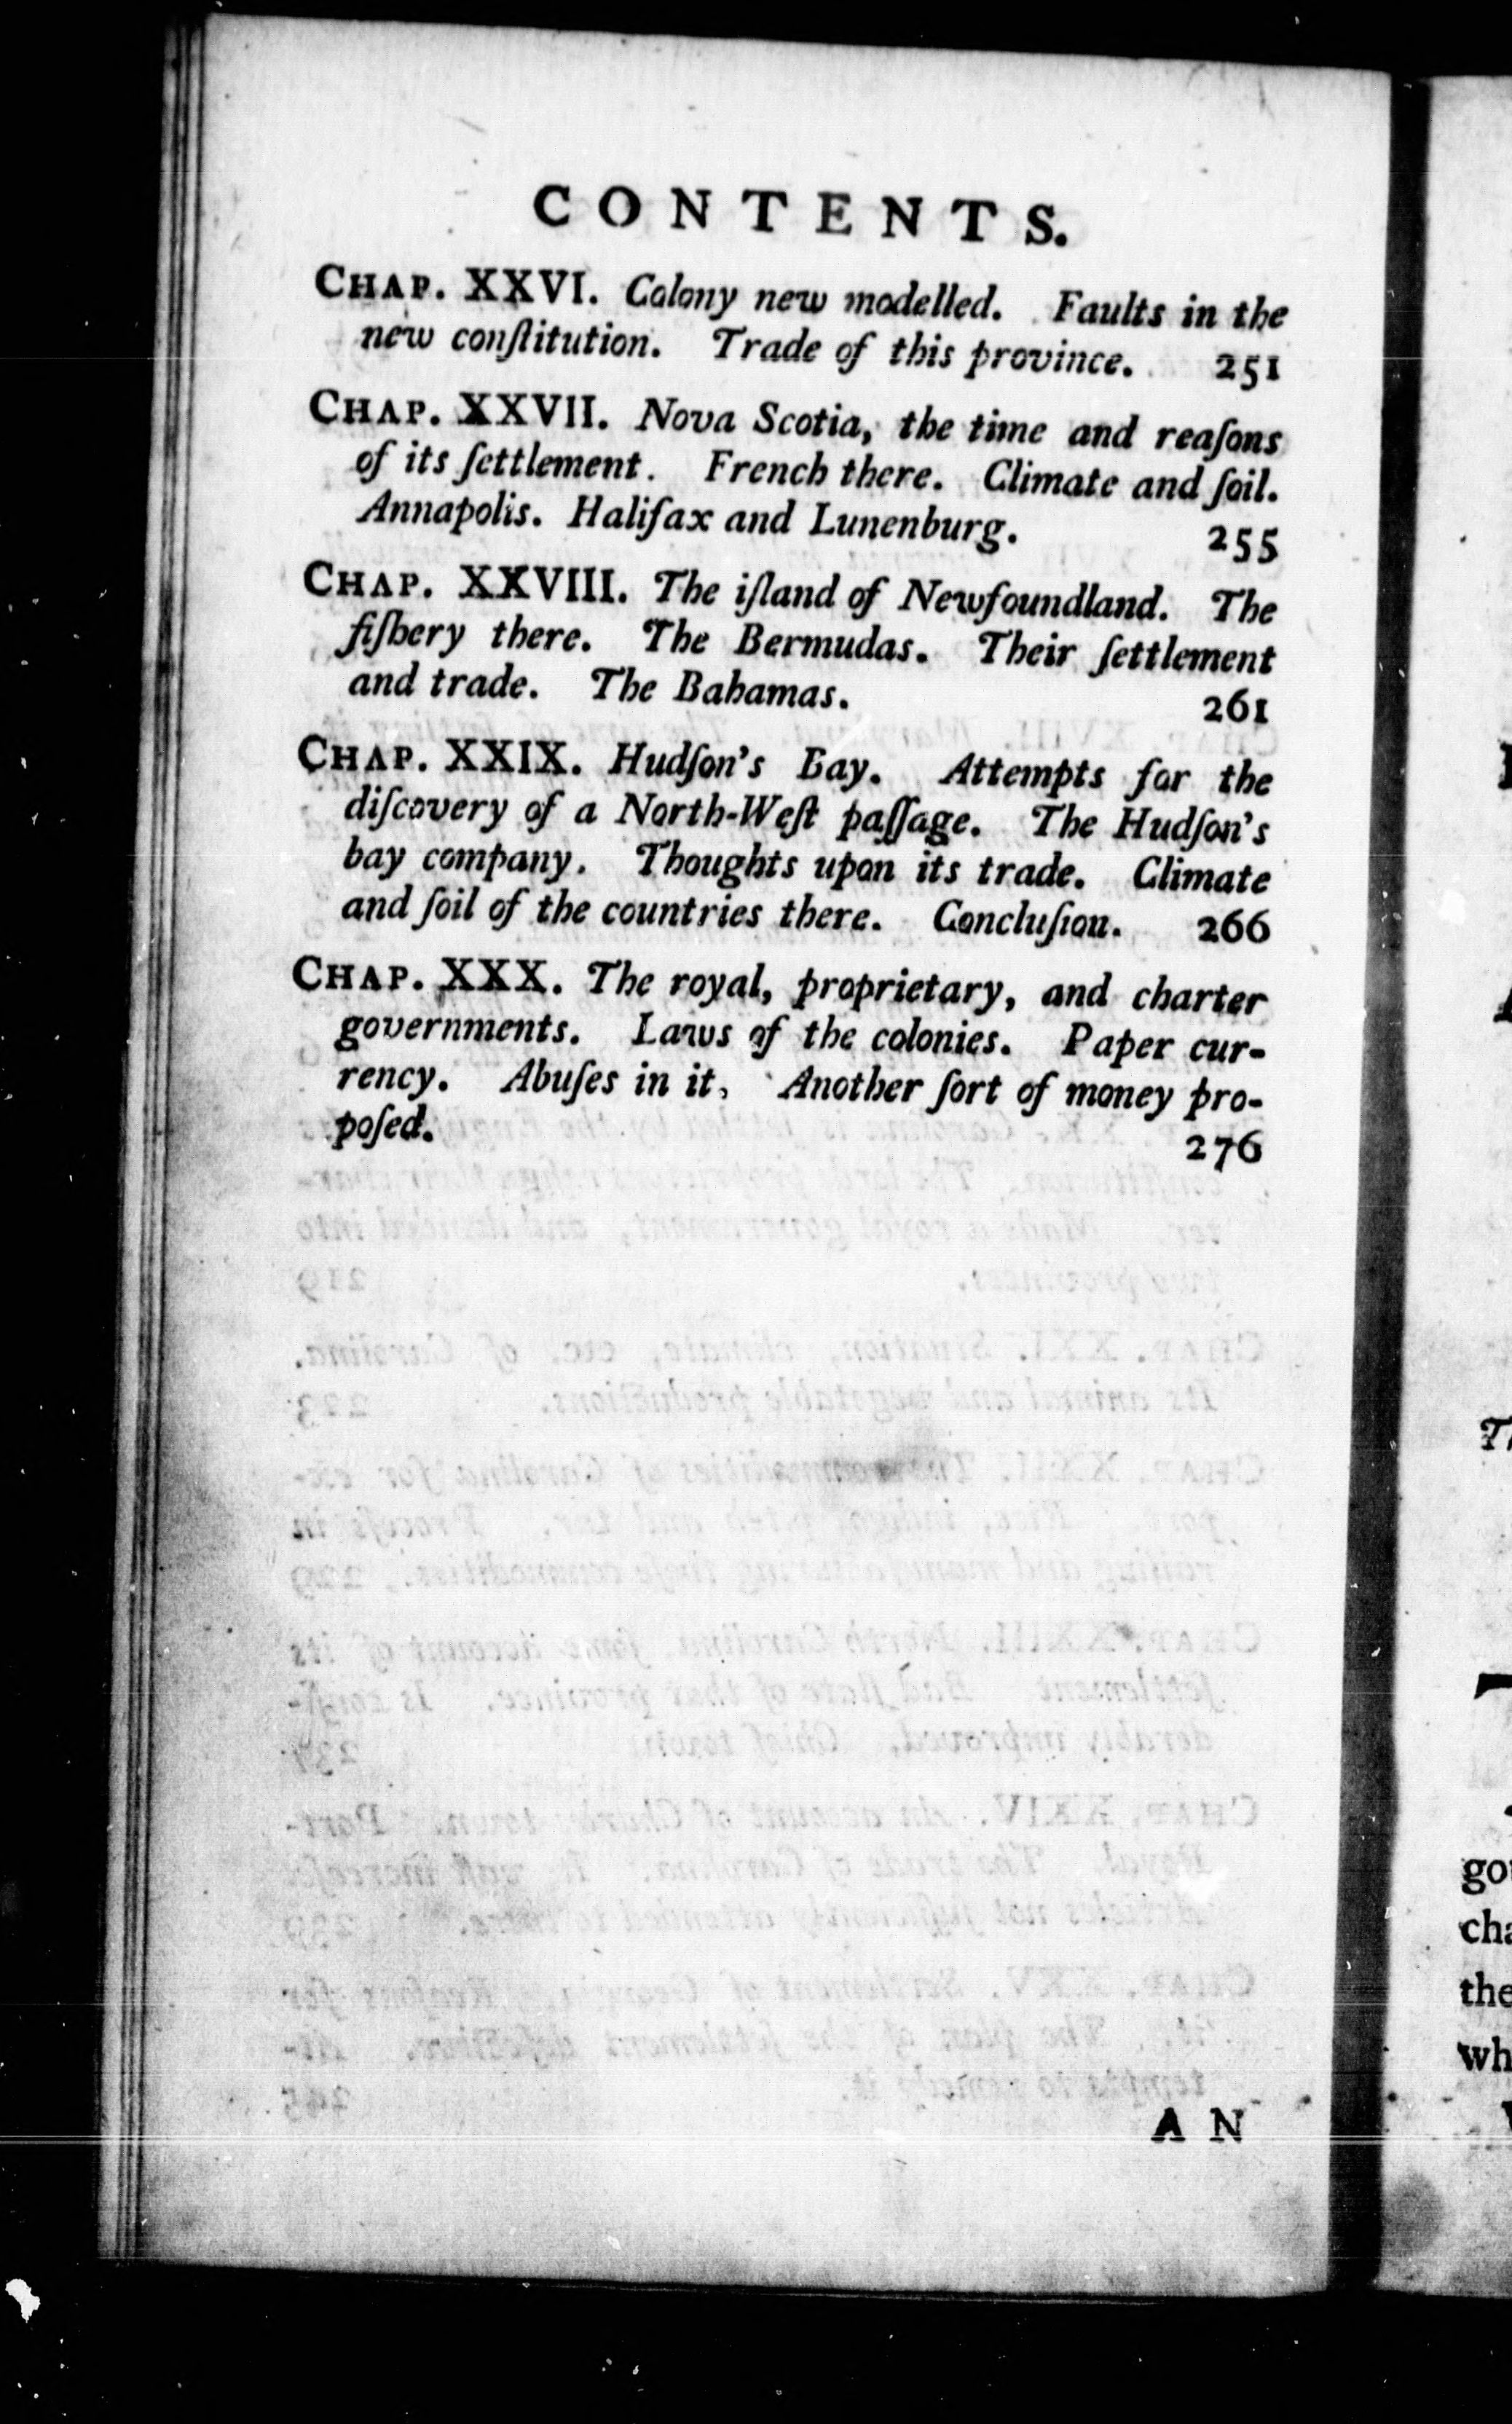 CONTENTS.
CHAP. XXVI. Colony new modelled. Faults in the
new conſtitution. Trade of this province. 251
CHAP. XXVII. Nova Scotia, the time and reaſons
of its ſettlement. French there. Climate and ſoil.
Annapolis. Halifax and Lunenburg. 255
CHAP. XXVIII. The iſland of Newfoundland. The
fiſhery there. The Bermudas. Their ſettlement
and trade. The Bahamas. 261
CHAP. XXIX. Hudſon's Bay. Attempts for the
diſcovery of a North-Weſt paſſage. The Hudſon's
bay company. Thoughts upon its trade. Climate
and ſoil of the countries there. Concluſion. 266
CHAP. XXX. The royal, proprietary, and charter
governments. Laws of the colonies. Paper cur-
rency. Abuſes in it. Another ſort of money pro-
poſed. 276
AN